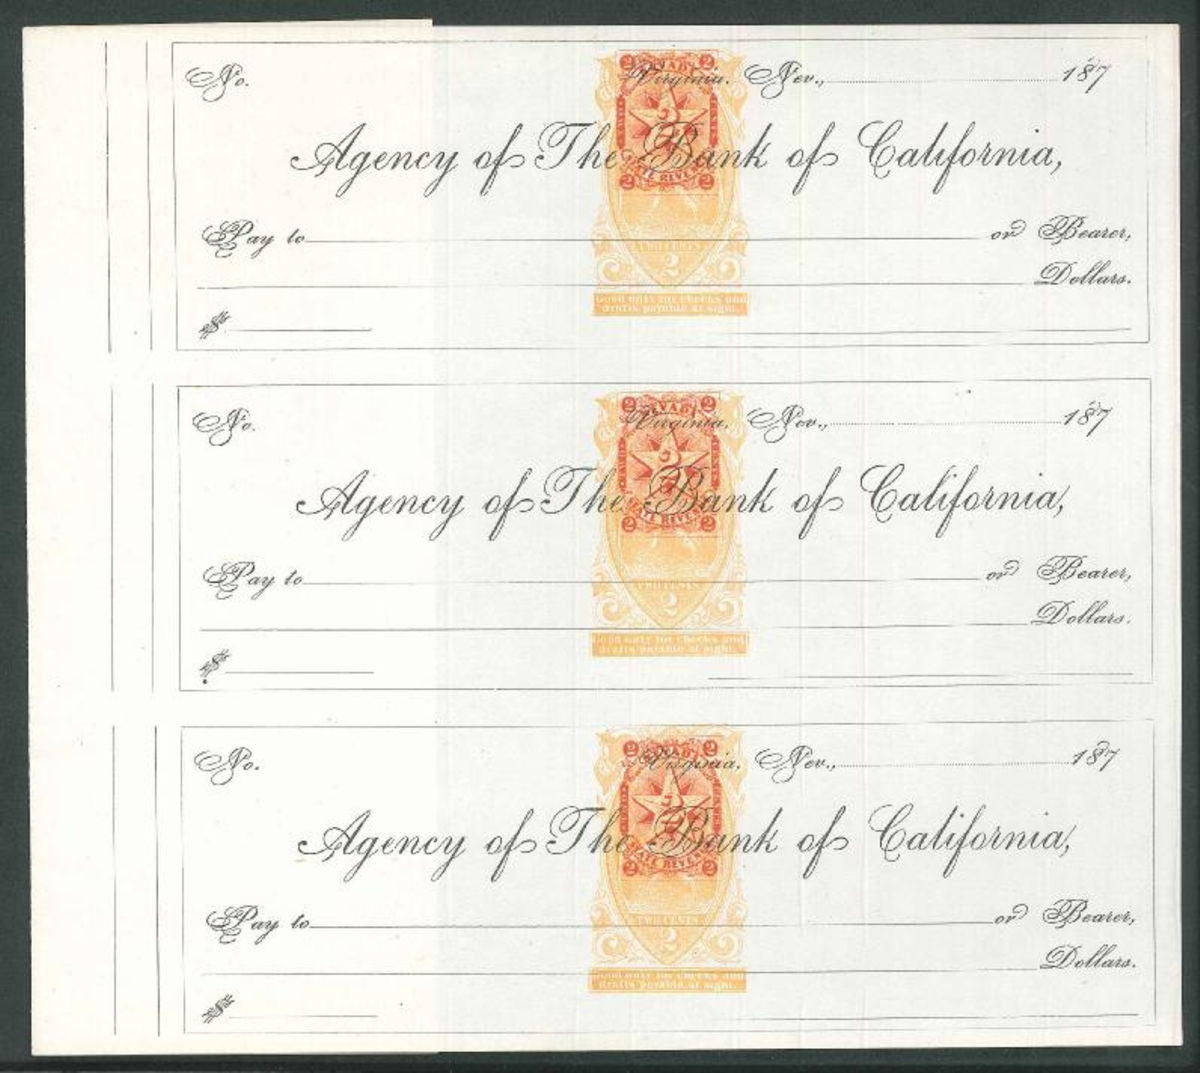 No. Virginia, Nev., 187
2 NEVADA 2
Agency of The Bank of California,
2 STATE REVENUE 2
Pay to or Bearer,
TWO CENTS
2
Dollars.
Good only for checks and
drafts payable at sight.
$
No. Virginia, Nev., 187
2 NEVADA 2
Agency of The Bank of California,
2 STATE REVENUE 2
Pay to or Bearer,
TWO CENTS
2
Dollars.
Good only for checks and
drafts payable at sight.
$
No. Virginia, Nev., 187
2 NEVADA 2
Agency of The Bank of California,
2 STATE REVENUE 2
Pay to or Bearer,
TWO CENTS
2
Dollars.
Good only for checks and
drafts payable at sight.
$